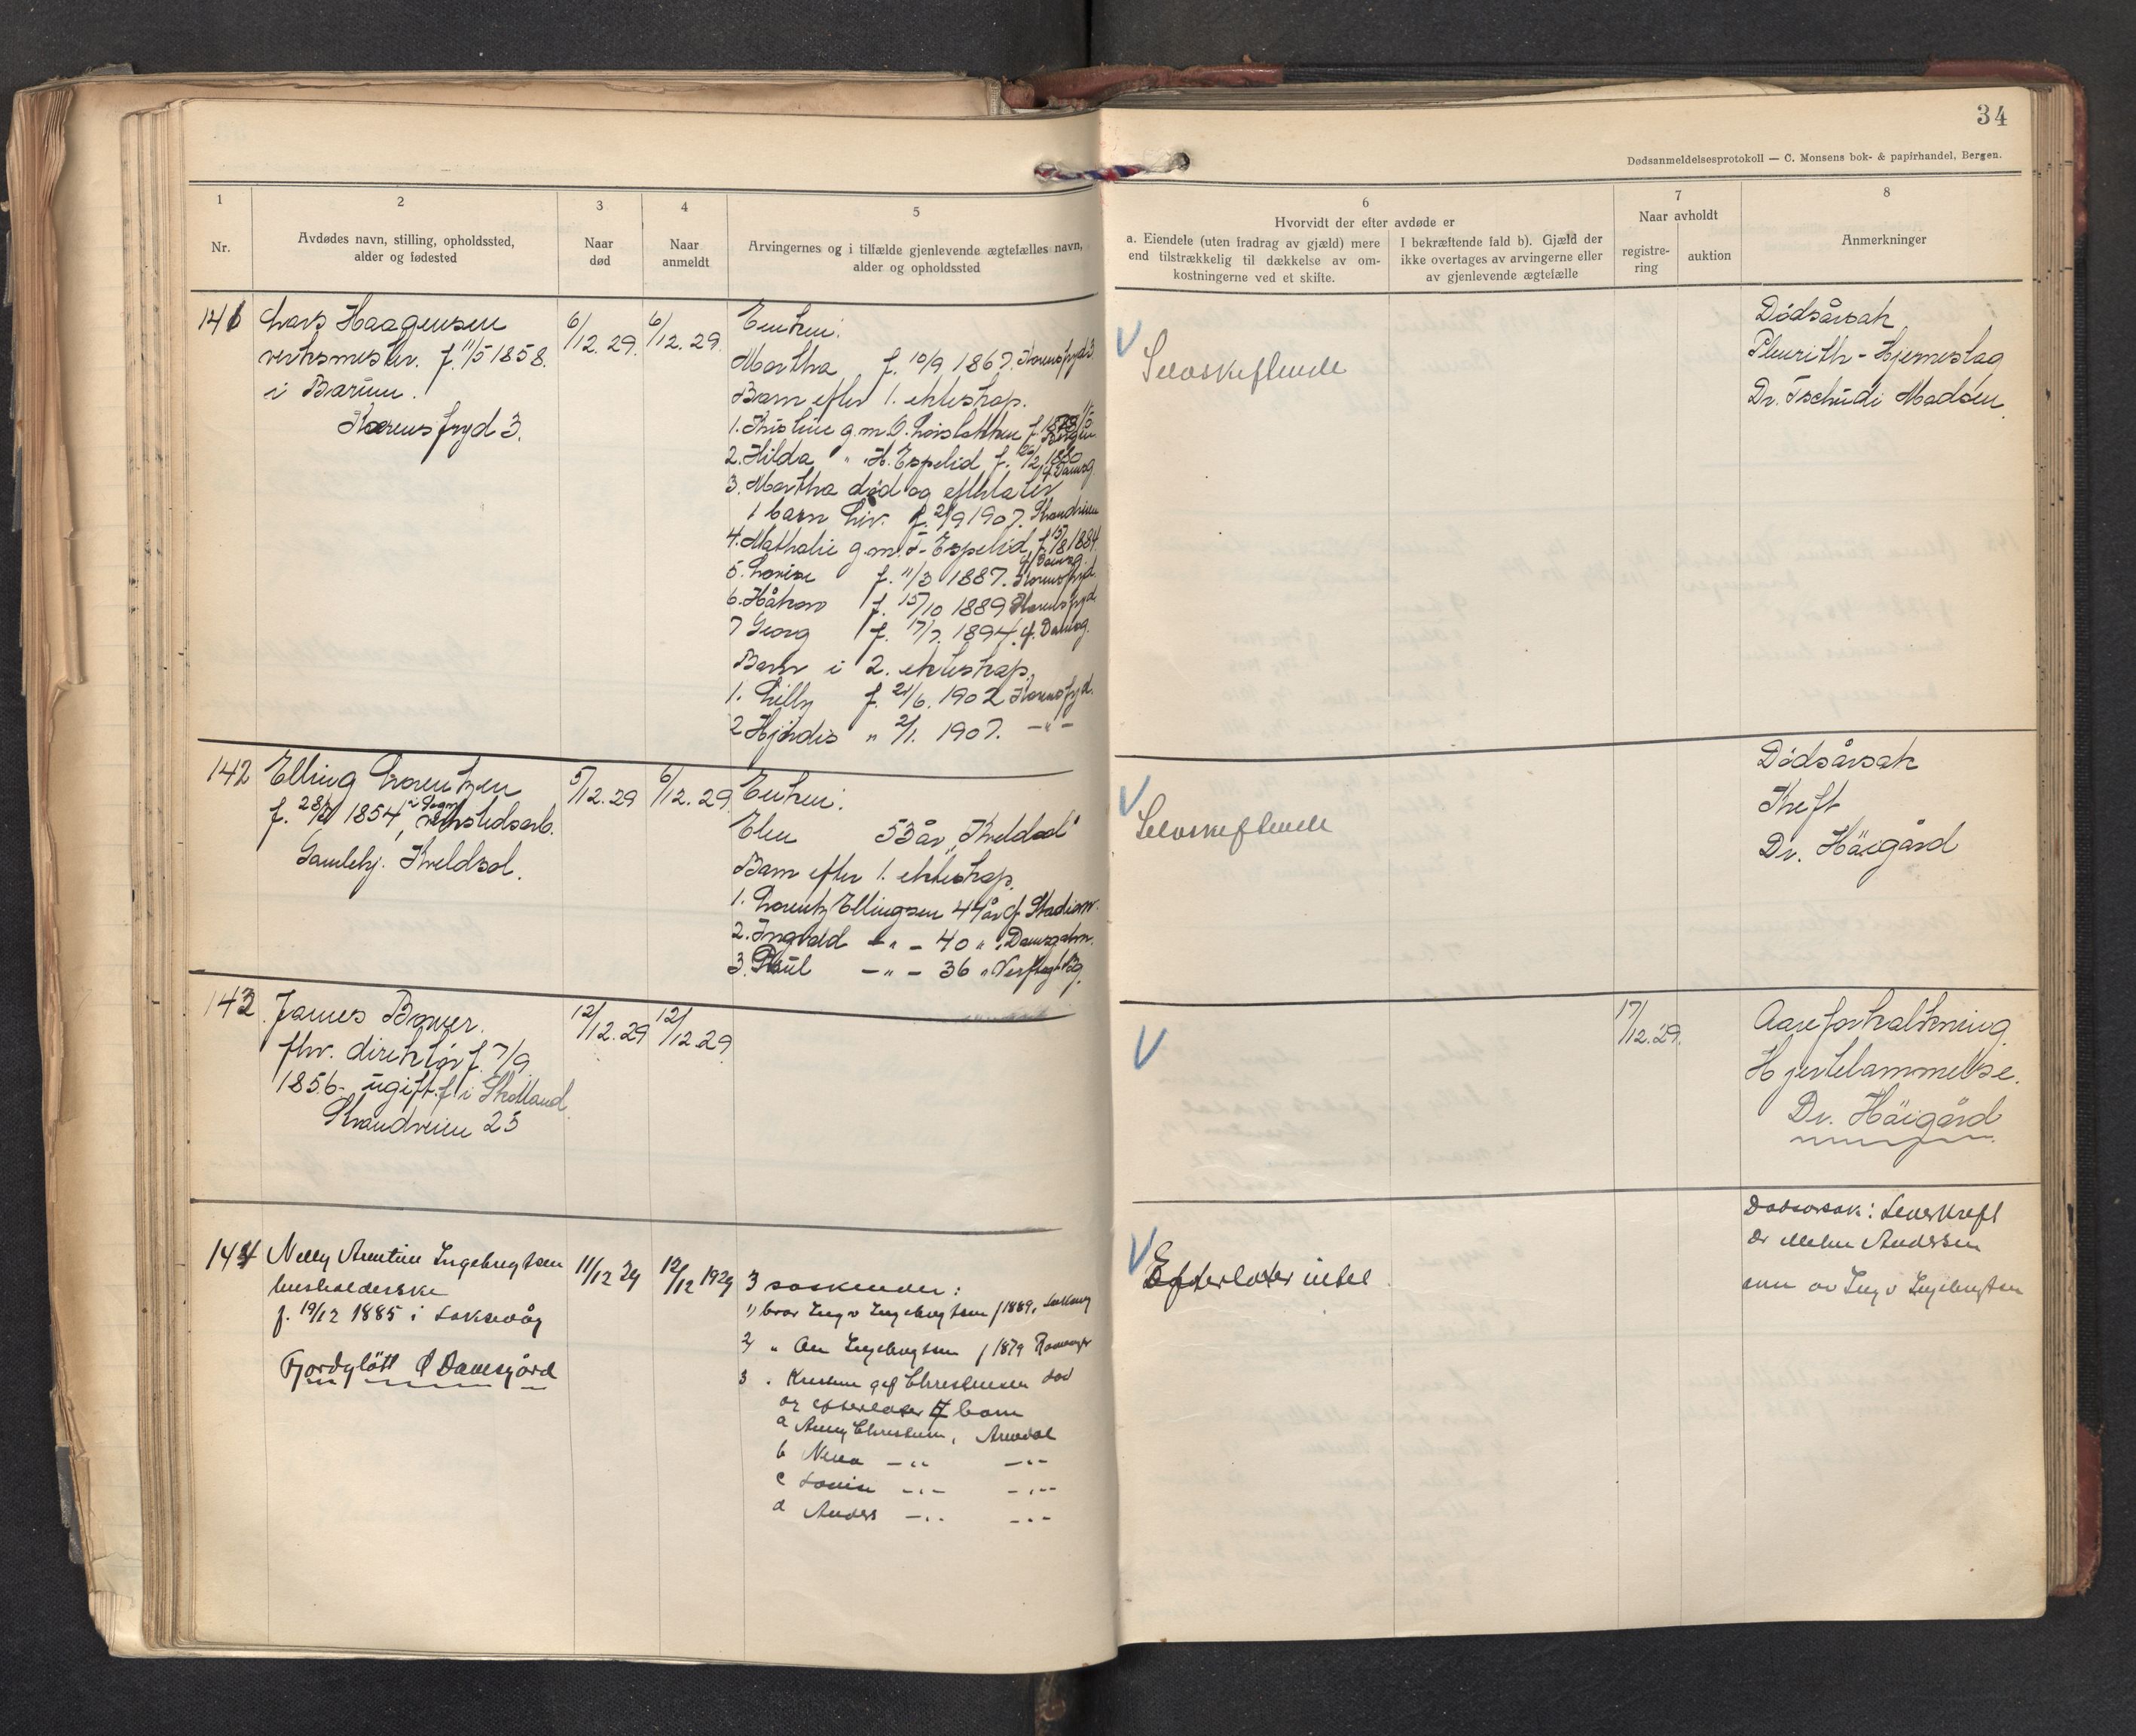 34
Dødsanmeldelsesprotokoll — C. Monsens bok- & papirhandel, Bergen.
1
Nr.
2
Avdødes navn, stilling, opholdssted,
alder og fødested
3
Naar
død
4
Naar
anmeldt
5
Arvingernes og i tilfælde gjenlevende ægtefælles navn,
alder og opholdssted
6
Hvorvidt der efter avdøde er
a. Eiendele (uten fradrag av gjæld) mere
end tilstrækkelig til dækkelse av om-
kostningerne ved et skifte.
I bekræftende fald b). Gjæld der
ikke overtages av arvingerne eller
av gjenlevende ægtefælle
7
Naar avholdt
registre-
ring
auktion
8
Anmerkninger
141
Lars Haagensen
verksmester. f. 11/5 1858.
i Bærum.
Karensfryd 3.
6/12. 29.
6/12. 29.
Enken:
Martha f. 10/9 1867. Karensfryd 3.
Barn efter 1. ekteskap.
1. Kristine g.m. O.
Bergen
2. Hilda " H. Espelid f. /2 1880
3. Martha død og efterlater
1 barn Liv. f. 2/9 1907. Strandveien
4. Mathalie g.m. J. Espelid, f. 15/8 1884.
5. Lovise f. 11/3 1887. Karensfryd.
6. Håkon f. 15/10 1889 Karensfryd
7 Georg f. 17/7. 1894. Ø. Damsg.
Barn i 2. ekteskap.
1. Lilly f. 21/6. 1902 Karensfryd.
2 Hjørdis " 2/1. 1907. -"-
Selvskiftende
Dødsårsak
Pleurith - Hjerneslag
Dr. Tschudi Madsen
142
Elling Lorentzen
f. 28/ 1854, verkstedsarb.
Gamlehj. Kveldsol.
5/12. 29
6/12. 29
Enken:
Elen 53 år "Kveldsol"
Barn efter 1. ekteskap.
1. Lorentz Ellingsen 44 år Ø. Stadionv.
2. Ingvald -"- 40 " Damsgaardsv.
3. Paul -"- 36 "
Selvskiftende
Dødsårsak
Kreft
Dr. Häigård
143
James Bower.
fhv. direktør f. 7/9
1856- ugift. f i Skotland
Strandveien 25
12/12. 29
12/12. 29
17/12. 29.
Aareforkalkning.
Hjertelammelse.
Dr. Häigård
144
Nelly Arentine Ingebregtsen
husholderske
f. 19/12 1885 i Laksevåg
Fjordgløtt Ø Damsgård
11/12 29
12/12 1929
3 søskender:
1) bror Ingv Ingebregtsen f 1889, Laksevåg
2) " Ingebregtsen f 1879
3 " gift Christensen død
og efterlater 4 barn
a Christensen, Arendal
b -"- -"-
c Louise -"- -"-
d Anders -"- -"-
Efterlater intet
Dødsorsak: Leverkreft
Dr Andersen
anm av Ingv Ingebregtsen